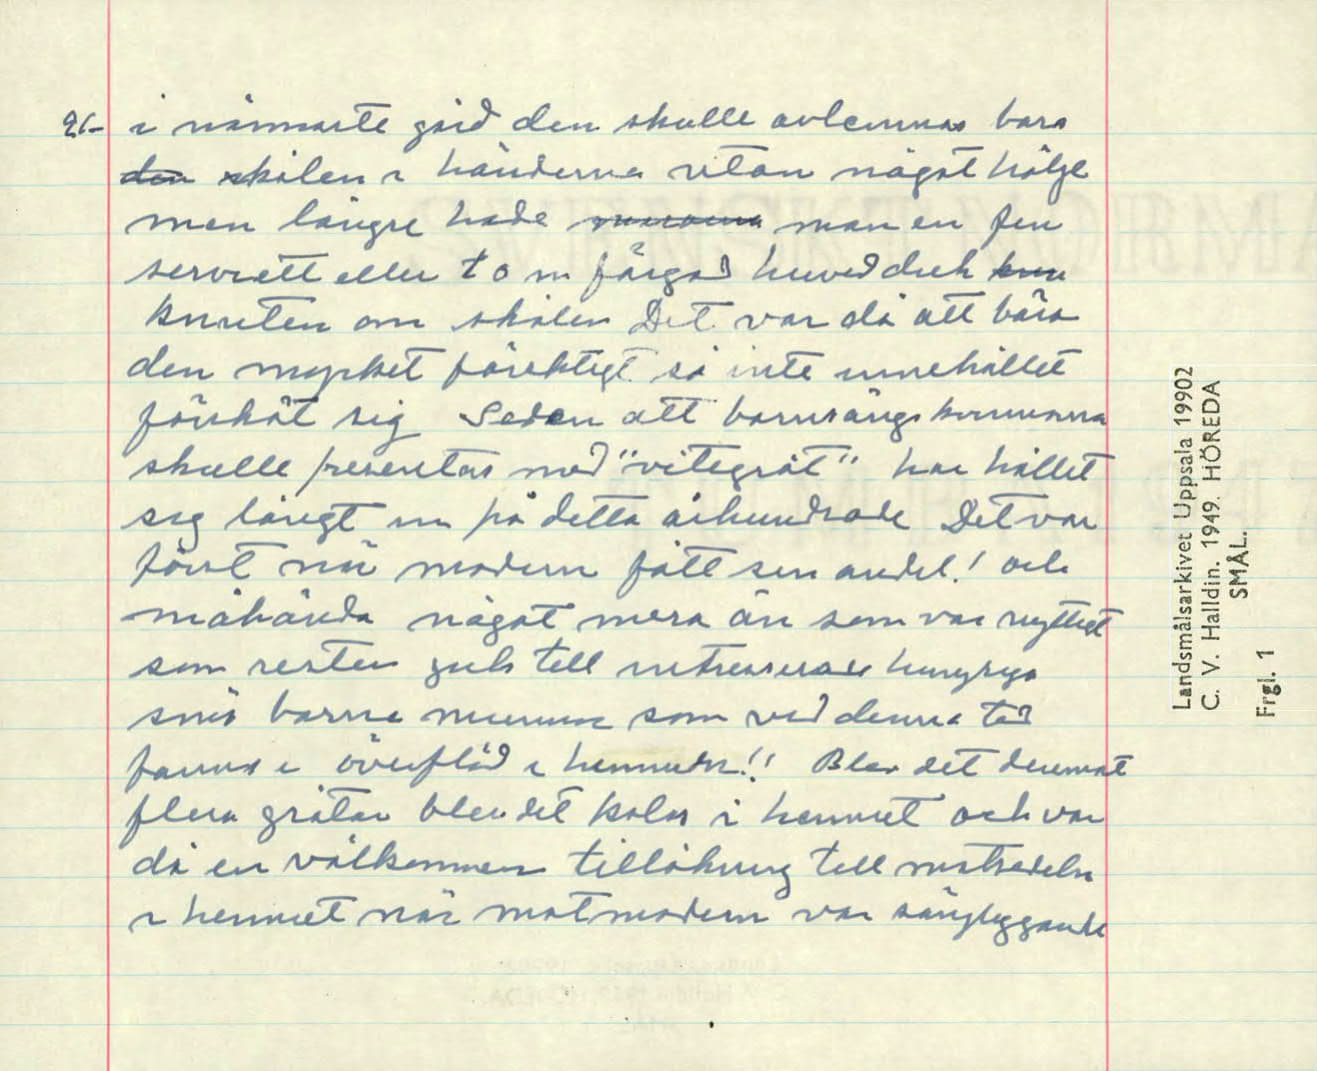 21- i närmaste gård den skulle avlemnas bara
den skålen i händerna utan något hölje
men längre hade man en fin
serviett eller t o m färgad huvudduk
knuten om skålen Det var då att bära
den mycket försiktigt så inte innehållet
försköt sig Seden att barnsängskvinnorna
skulle presenteras med "vitegröt" har hållet
sig långt in på detta århundrade Det var
först när modern fått sin andel! och
måhända något mera än som var nyttigt
som resten gick till intresserade hungryga
små barna munnar som ved denna tid
fanns i överflöd i hemmen!! Blev det däremot
flera grötar blev det kalas i hemmet och var
då en välkommen tillökning till matsedeln
i hemmet när matmodern var sängliggande
Landsmålsarkivet Uppsala 19902
C. V. Halldin. 1949. HÖREDA
SMÅL.
Frgl. 1